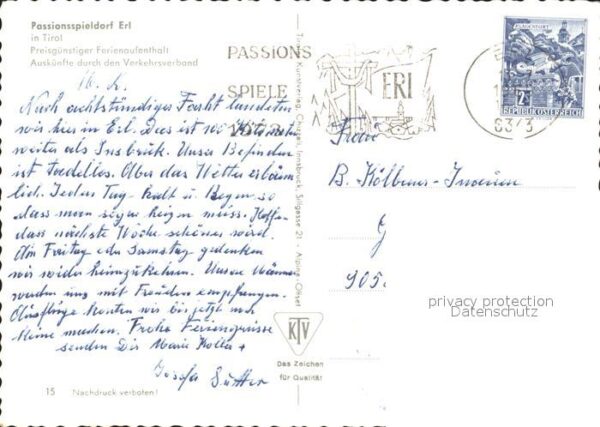 Passionsspieldorf Erl
in Tirol
Preisgünstiger Ferienaufenthalt
Auskünfte durch den Verkehrsverband
Nach achtstündiger Facht landeten
wir hier in Erl. Dies ist 100 Kilometer
weiter als Insbruck. Unser Befinden
ist tadellos. Aber das Wetter erbärm-
lich. Jeden Tag kalt u. Regen so
dass man sogar heizen muss. Hoffe
dass nächste Woche schönes wird.
Am Freitag oder Samstag gedenken
wir wieder heimzukehren. Unsere Männer
werden uns mit Freuden empfangen.
Ausflüge konten wir bis jetzt nur
kleine machen. Frohe Feriengrüsse
senden Dir Marie Koller +
Josefa Sutter
15 Nachdruck verboten!
Kunstverlag Chizzali, Innsbruck, Sillgasse 21 - Alpina-Offset
KTV
Das Zeichen
für Qualität
PASSIONS
SPIELE
ERL
6343
KLAGENFURT
2
REPUBLIK ÖSTERREICH
Frau
B. Kölbener
G
905.
privacy protection
Datenschutz